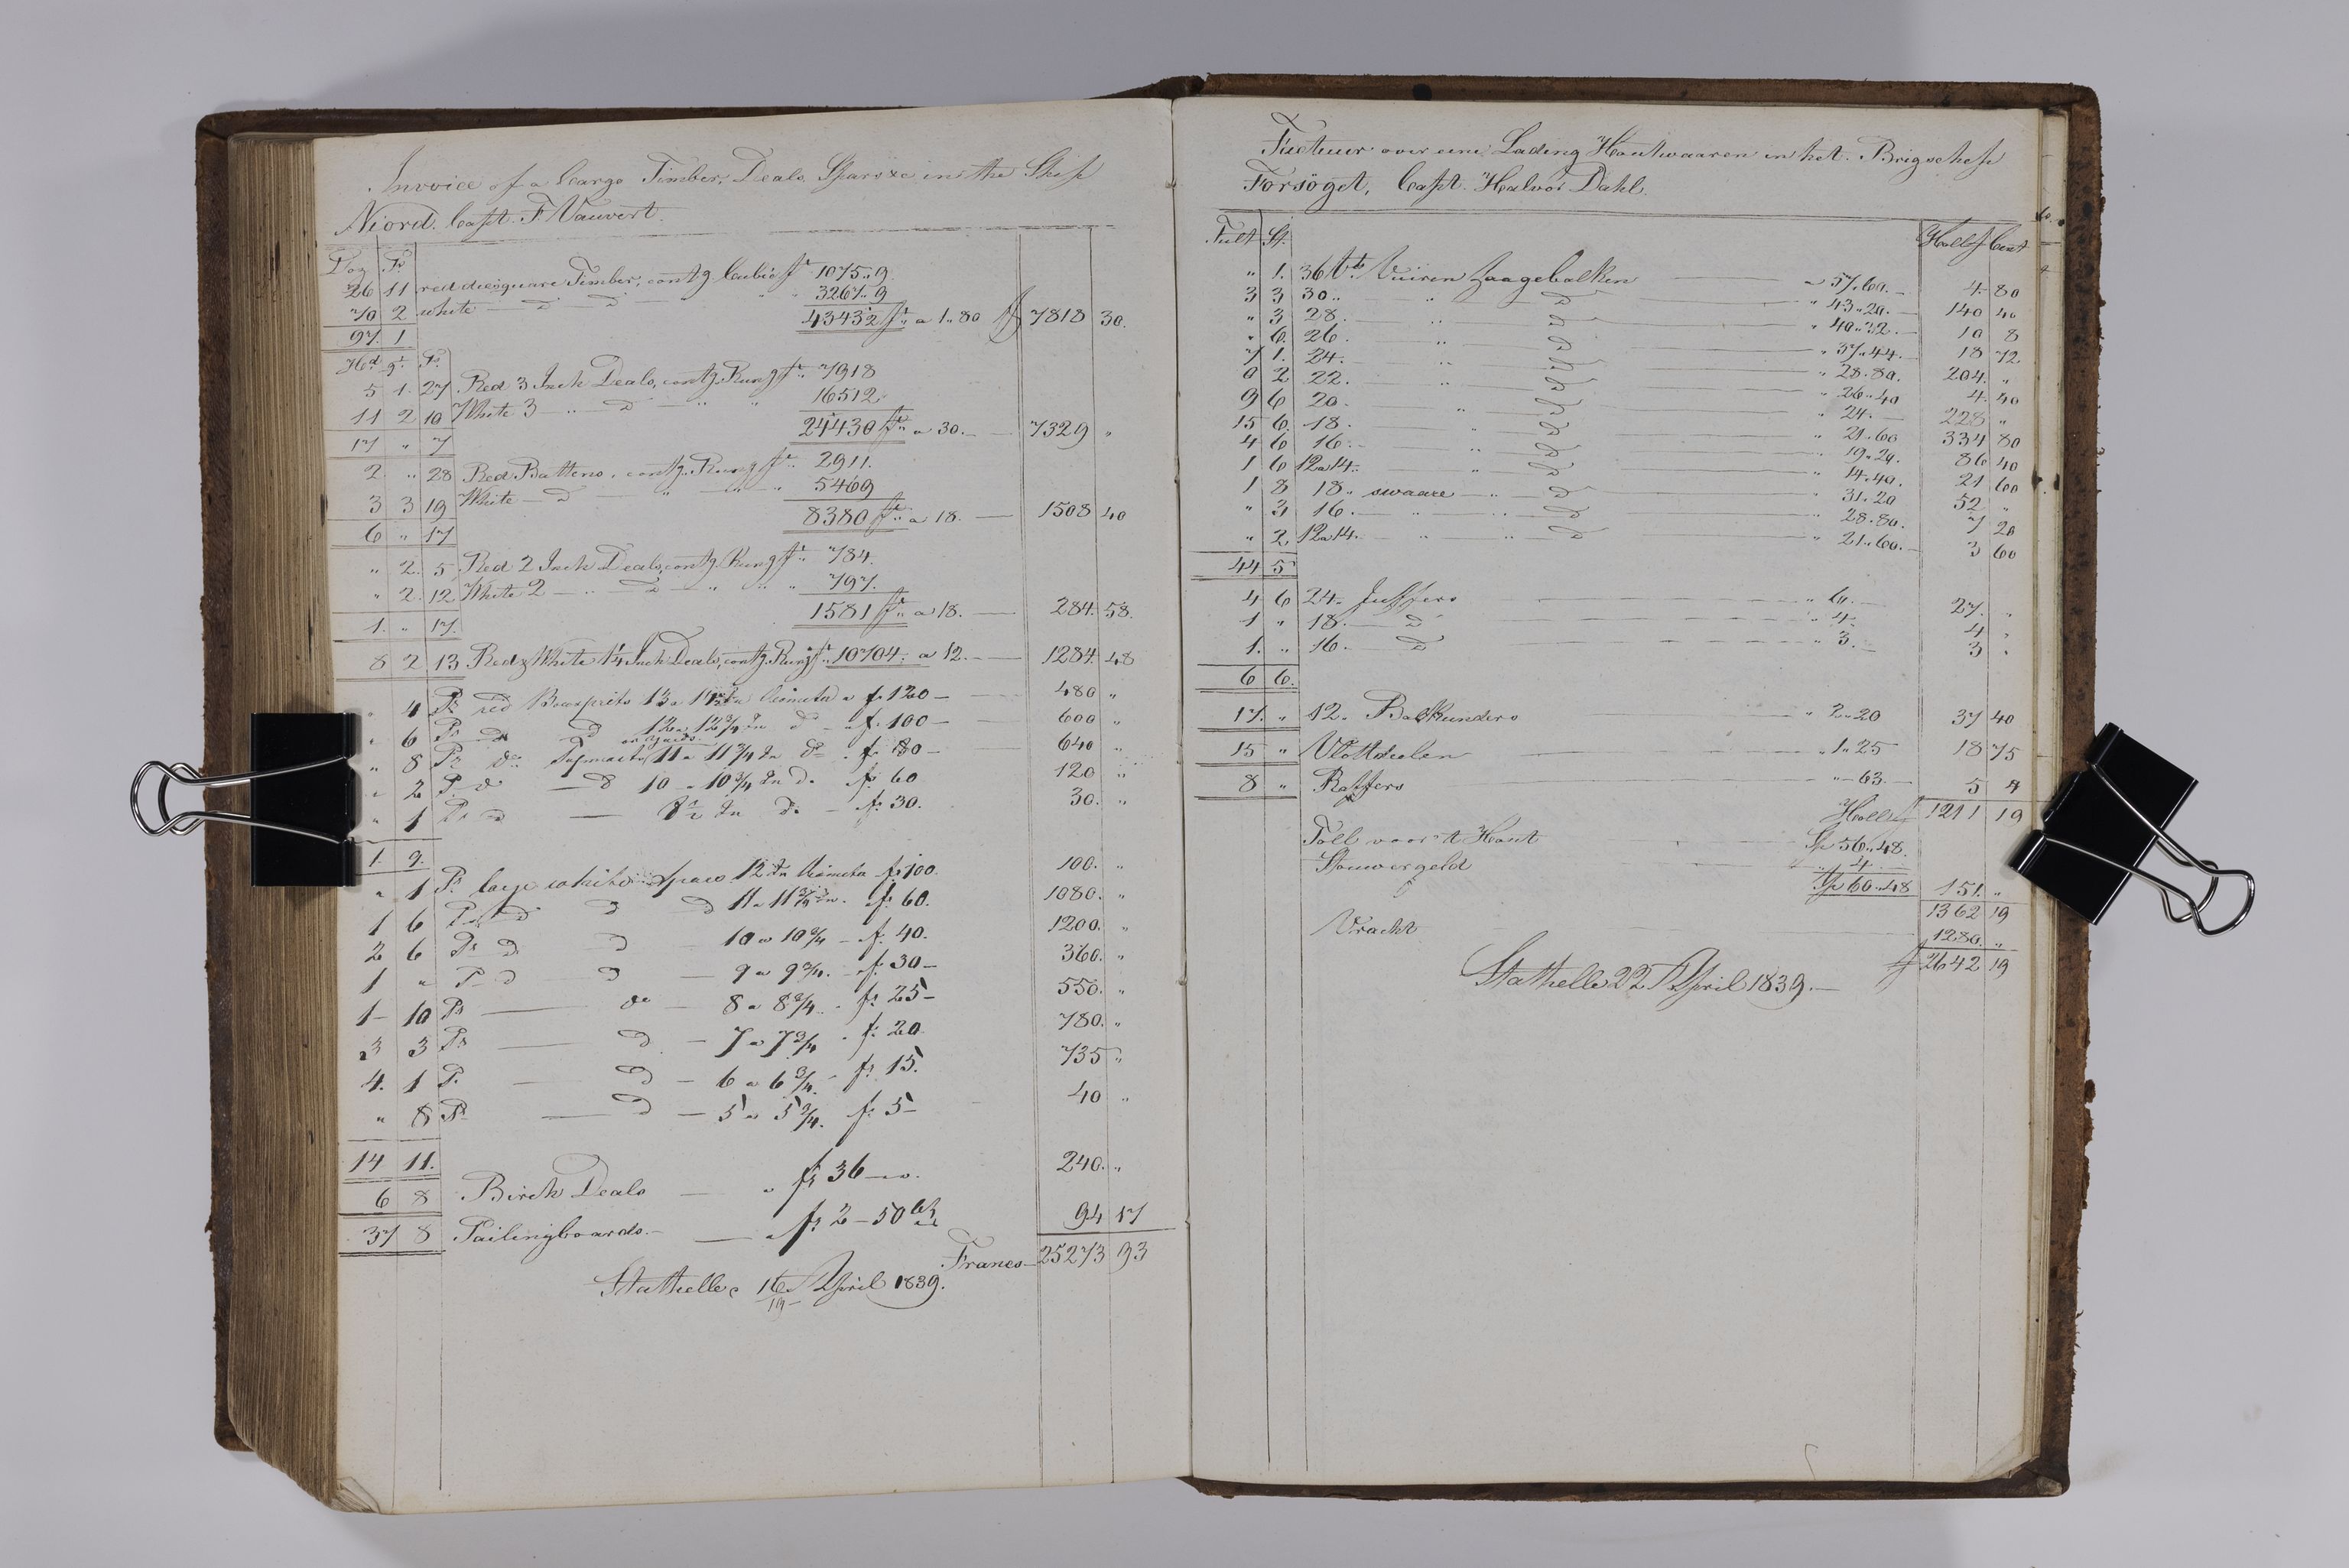 Invoice of a Cargo Timber, Deals, Spars &c in the Ship
Niord. Capt. F. Vauvert.
Doz Ps
26 11 red die square Timber, contg Cubic ft 1075 „ 9
70 2 white — do do „ „ 3267 „ 9
97. 1. 4343 2 ft a 1„80 f 7818 30.
Hd qr Ps
5 1. 27. Red 3 Inch Deals, contg. Rung ft „ 7918
11 2 10 White 3 — „ — do — „ „ 16512
17 „ 7 24430 ft „ a 30. — 7329 „
2. „ 28 Red Battens, contg. Rung ft „ 2911.
3 3 19 White — do — „ „ „ 5469
6 „ 17 8380 ft „ a 18. — 1508 40
„ 2. 5 Red 2 Inch Deals, contg. Rung ft „ 784.
„ 2. 12 White 2 — „ — do — „ „ „ 797.
1. „ 17. 1581 ft „ a 18. — 284. 58.
8 2 13 Red & White 1¼ Inch Deals, contg. Rung ft „ 10704. a 12. — 1284. 48
„ 4 Ps red Bowsprits 13 a In Diameter a fr 120 — 480 „
„ 6 Ps do do 12 a 12¾ In do a fr. 100 — 600 „
„ 8 Ps do Topmasts 11 a 11¾ In do fr. 80 — 640 „
„ 2 Ps do — do 10 a 10¾ In do fr 60 120 „
„ 1 Ps do — 8½ In do — fr. 30. 30. „
1. 9.
„ 1 Ps large white spars 12 In Diameter fr. 100. 100. „
1 6 Ps do do do 11 a 11¾ In. fr. 60. 1080. „
2 6 Ps do do — 10 a 10¾ — fr. 40. 1200. „
1 „ Ps do do — 9 a 9¾. — fr. 30 — 360. „
1 — 10 Ps — do — 8 a 8¾ — fr. 25 — 550. „
3 3 Ps — do — 7 a 7¾ — fr. 20 780. „
4. 1 Ps — do — 6 a 6¾ — fr. 15. 735 „
„ 8 Ps — do — 5 a 5¾. fr. 5 — 40 „
14 11.
6 8 Birch Deals — a fr 36 — „. 240. „
37 8 Pailingboards. — — a fr 2 — 50 cts 94 17
Francs — 25273 93
Stathelle 16 April 1839.
Factuur over eene Lading Houtwaaren in het Brigschip
Forsöget, Capt. Halvor Dahl.
Tult St. Holl f Cent
„ 1. 36 Vuiren Zaagebalken — a 57.60. — 4. 80
3 3 30 „ „ do — „ 43.20. — 140 40
„ 3 28. „ do — „ 40.32. — 10 8
„ 6. 26. „ do — „ 37.44. — 18 72
7 1. 24. „ do — „ 28.80. 204. „
„ 2 22. „ do — „ 26.40 4. 40
9 6 20. „ do — „ 24. — 228 „
15 6. 18. „ do — „ 21.60 334 80
4 6 16. — „ do — „ 19.20. 86 40
1 6 12a14. „ do — „ 14.40. 21 60
1 8 18. swaare — „ — do — „ 31.20 52 „
„ 3 16. — „ „ do — „ 28.80. 7 20
„ 2 12a14. — „ „ do — „ 21.60. — 3 60
44 5
4 6 24. Juffers — „ 6. — 27. „
1 „ 18. — do — „ 4. 4 „
1. „ 16. — do — „ 3. — 3 „
6 6.
17. „ 12. — „ 2.20 37 40
15 „ Vlotdeelen — „ 1.25 18 75
8 „ Raffers — „ — 63. — 5 4
Holl f 1211 19
Toll voor 't Hout Sp 56.48.
Stouwergeld „ 4. —
Sp 60.48 151. „
1362 19
Vracht 1280. „
f 2642 19
Stathelle 22 April 1839. —